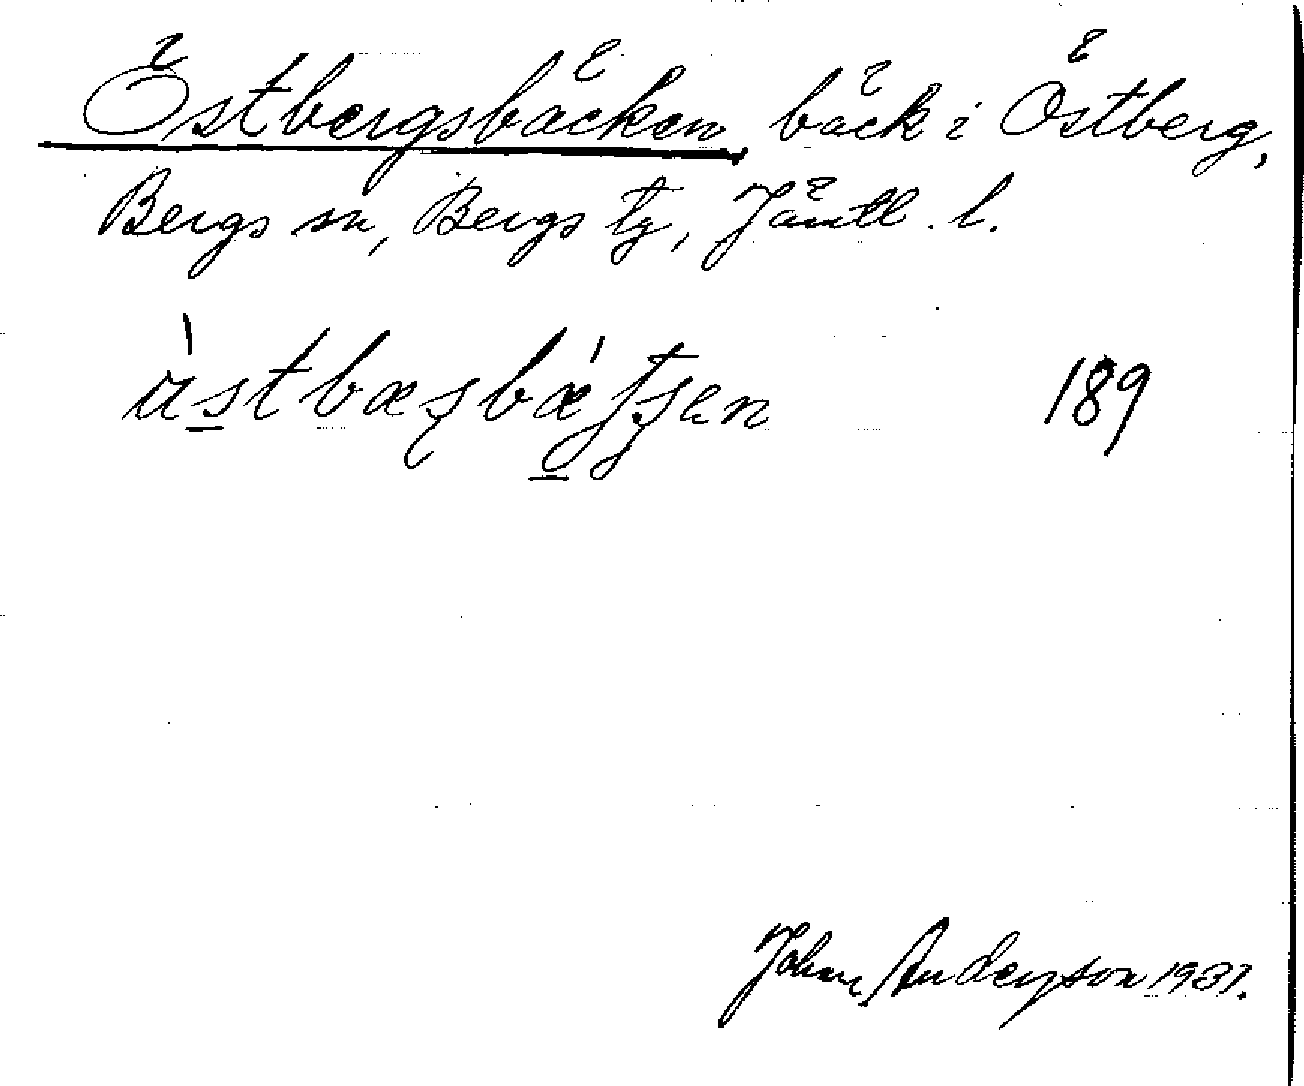 Östbergsbäcken, bäck i Östberg,
Bergs sn, Bergs tg, Jämtl. l.
189
John Anderson 1931.